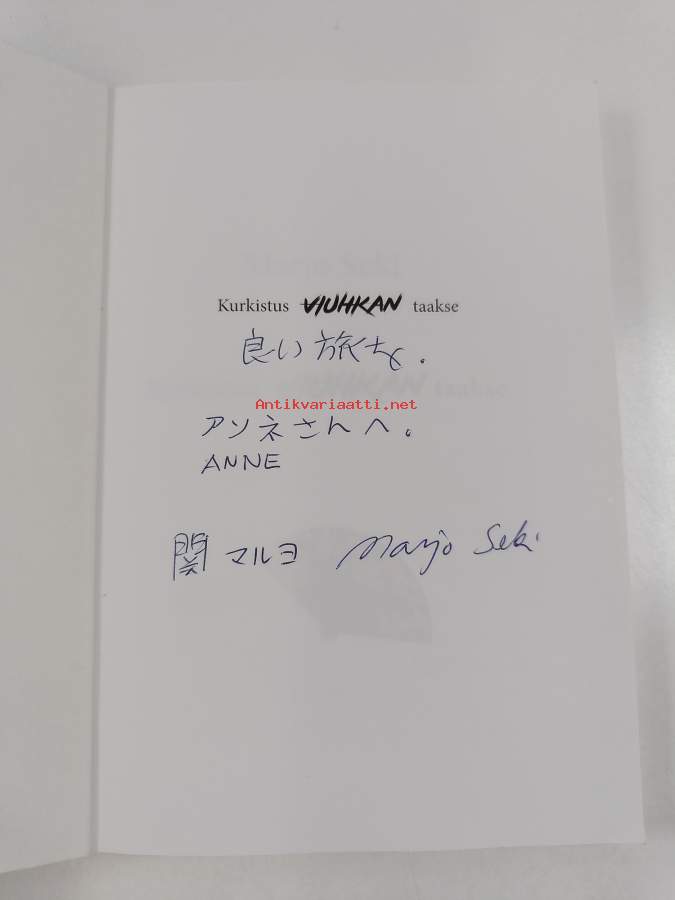 Kurkistus VIUHKAN taakse
良い旅を。
Antikvariaatti.net
アンネさんへ。
ANNE
関 マルヨ Marjo Seki